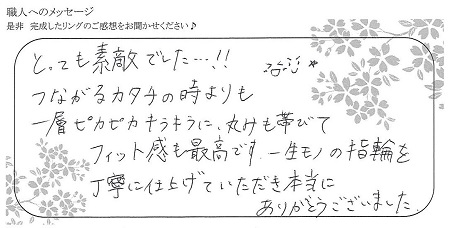 職人へのメッセージ
是非 完成したリングのご感想をお聞かせください♪
とっても素敵でした…!!
つながるカタチの時よりも
一層ピカピカキラキラに、丸みも帯びて
フィット感も最高です。一生モノの指輪を
丁寧に仕上げていただき本当に
ありがとうございました。